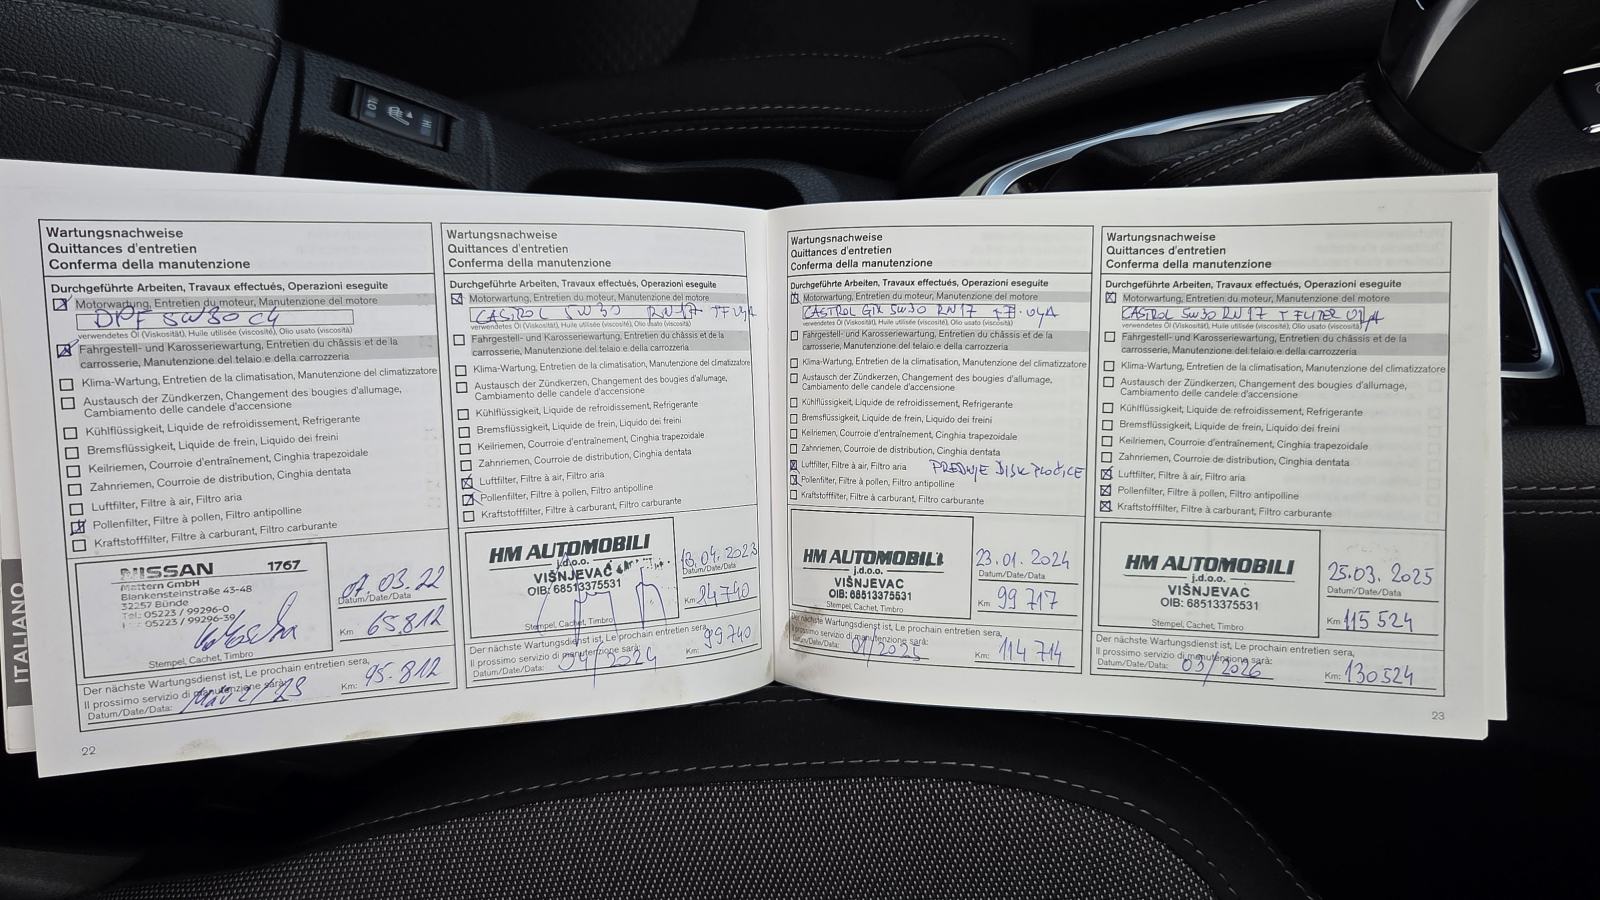 OFF
HI
LO
ITALIANO
Wartungsnachweise
Quittances d'entretien
Conferma della manutenzione
Durchgeführte Arbeiten, Travaux effectués, Operazioni eseguite
Motorwartung, Entretien du moteur, Manutenzione del motore
DPF 5W30 C4
verwendetes Öl (Viskosität), Huile utilisée (viscosité), Olio usato (viscosità)
Fahrgestell- und Karosseriewartung, Entretien du châssis et de la
carrosserie, Manutenzione del telaio e della carrozzeria
Klima-Wartung, Entretien de la climatisation, Manutenzione del climatizzatore
Austausch der Zündkerzen, Changement des bougies d'allumage,
Cambiamento delle candele d'accensione
Kühlflüssigkeit, Liquide de refroidissement, Refrigerante
Bremsflüssigkeit, Liquide de frein, Liquido dei freini
Keilriemen, Courroie d'entraînement, Cinghia trapezoidale
Zahnriemen, Courroie de distribution, Cinghia dentata
Luftfilter, Filtre à air, Filtro aria
Pollenfilter, Filtre à pollen, Filtro antipolline
Kraftstofffilter, Filtre à carburant, Filtro carburante
NISSAN 1767
Mattern GmbH
Blankensteinstraße 43-48
32257 Bünde
Tel.: 05223 / 99296-0
05223 / 99296-39
Stempel, Cachet, Timbro
07.03.22
Datum/Date/Data
Km 65.812
Der nächste Wartungsdienst ist, Le prochain entretien sera,
Il prossimo servizio di manutenzione sarà:
Datum/Date/Data: März/23
Km: 95.812
22
Wartungsnachweise
Quittances d'entretien
Conferma della manutenzione
Durchgeführte Arbeiten, Travaux effectués, Operazioni eseguite
Motorwartung, Entretien du moteur, Manutenzione del motore
CASTROL 5W30 RN17 + F. ULJA
verwendetes Öl (Viskosität), Huile utilisée (viscosité), Olio usato (viscosità)
Fahrgestell- und Karosseriewartung, Entretien du châssis et de la
carrosserie, Manutenzione del telaio e della carrozzeria
Klima-Wartung, Entretien de la climatisation, Manutenzione del climatizzatore
Austausch der Zündkerzen, Changement des bougies d'allumage,
Cambiamento delle candele d'accensione
Kühlflüssigkeit, Liquide de refroidissement, Refrigerante
Bremsflüssigkeit, Liquide de frein, Liquido dei freini
Keilriemen, Courroie d'entraînement, Cinghia trapezoidale
Zahnriemen, Courroie de distribution, Cinghia dentata
Luftfilter, Filtre à air, Filtro aria
Pollenfilter, Filtre à pollen, Filtro antipolline
Kraftstofffilter, Filtre à carburant, Filtro carburante
HM AUTOMOBILI
j.d.o.o.
VIŠNJEVAC
OIB: 68513375531
Stempel, Cachet, Timbro
13.04.2023
Datum/Date/Data
Km 84740
Der nächste Wartungsdienst ist, Le prochain entretien sera,
Il prossimo servizio di manutenzione sarà:
Datum/Date/Data: 04/2024
Km: 99740
Wartungsnachweise
Quittances d'entretien
Conferma della manutenzione
Durchgeführte Arbeiten, Travaux effectués, Operazioni eseguite
Motorwartung, Entretien du moteur, Manutenzione del motore
CASTROL GTX 5W30 RN17 + F. ULJA
verwendetes Öl (Viskosität), Huile utilisée (viscosité), Olio usato (viscosità)
Fahrgestell- und Karosseriewartung, Entretien du châssis et de la
carrosserie, Manutenzione del telaio e della carrozzeria
Klima-Wartung, Entretien de la climatisation, Manutenzione del climatizzatore
Austausch der Zündkerzen, Changement des bougies d'allumage,
Cambiamento delle candele d'accensione
Kühlflüssigkeit, Liquide de refroidissement, Refrigerante
Bremsflüssigkeit, Liquide de frein, Liquido dei freini
Keilriemen, Courroie d'entraînement, Cinghia trapezoidale
Zahnriemen, Courroie de distribution, Cinghia dentata
Luftfilter, Filtre à air, Filtro aria PREDNJE DISK PLOČICE
Pollenfilter, Filtre à pollen, Filtro antipolline
Kraftstofffilter, Filtre à carburant, Filtro carburante
HM AUTOMOBILI
j.d.o.o.
VIŠNJEVAC
OIB: 68513375531
Stempel, Cachet, Timbro
23.01.2024
Datum/Date/Data
Km 99717
Der nächste Wartungsdienst ist, Le prochain entretien sera,
Il prossimo servizio di manutenzione sarà:
Datum/Date/Data: 01/2025
Km: 114714
Wartungsnachweise
Quittances d'entretien
Conferma della manutenzione
Durchgeführte Arbeiten, Travaux effectués, Operazioni eseguite
Motorwartung, Entretien du moteur, Manutenzione del motore
CASTROL 5W30 RN17 + FILTER ULJA
verwendetes Öl (Viskosität), Huile utilisée (viscosité), Olio usato (viscosità)
Fahrgestell- und Karosseriewartung, Entretien du châssis et de la
carrosserie, Manutenzione del telaio e della carrozzeria
Klima-Wartung, Entretien de la climatisation, Manutenzione del climatizzatore
Austausch der Zündkerzen, Changement des bougies d'allumage,
Cambiamento delle candele d'accensione
Kühlflüssigkeit, Liquide de refroidissement, Refrigerante
Bremsflüssigkeit, Liquide de frein, Liquido dei freini
Keilriemen, Courroie d'entraînement, Cinghia trapezoidale
Zahnriemen, Courroie de distribution, Cinghia dentata
Luftfilter, Filtre à air, Filtro aria
Pollenfilter, Filtre à pollen, Filtro antipolline
Kraftstofffilter, Filtre à carburant, Filtro carburante
HM AUTOMOBILI
j.d.o.o.
VIŠNJEVAC
OIB: 68513375531
Stempel, Cachet, Timbro
25.03.2025
Datum/Date/Data
Km 115524
Der nächste Wartungsdienst ist, Le prochain entretien sera,
Il prossimo servizio di manutenzione sarà:
Datum/Date/Data: 03/2026
Km: 130524
23